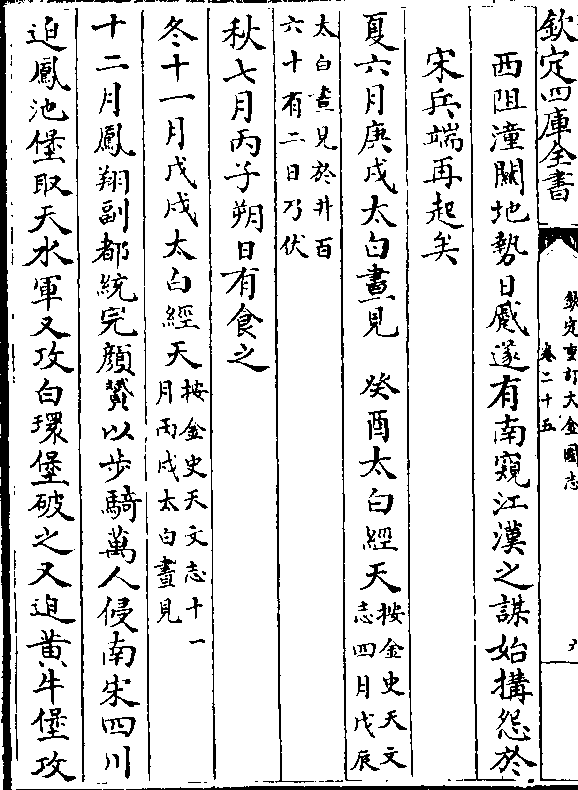 欽定四庫全書
欽定重訂大金國志
卷二十五
九
西阻潼關地勢日蹙遂有南窺江漢之謀始搆怨於
宋兵端再起矣
夏六月庚戌太白晝見 癸酉太白經天按金史天文
志四月戊辰
太白晝見於井百
六十有二日乃伏
秋七月丙子朔日有食之
冬十一月戊戌太白經天按金史天文志十一
月丙戌太白晝見
十二月鳳翔副都統完顔贇以步騎萬人侵南宋四川
迫鳳池堡取天水軍又攻白環堡破之又迫黄牛堡攻